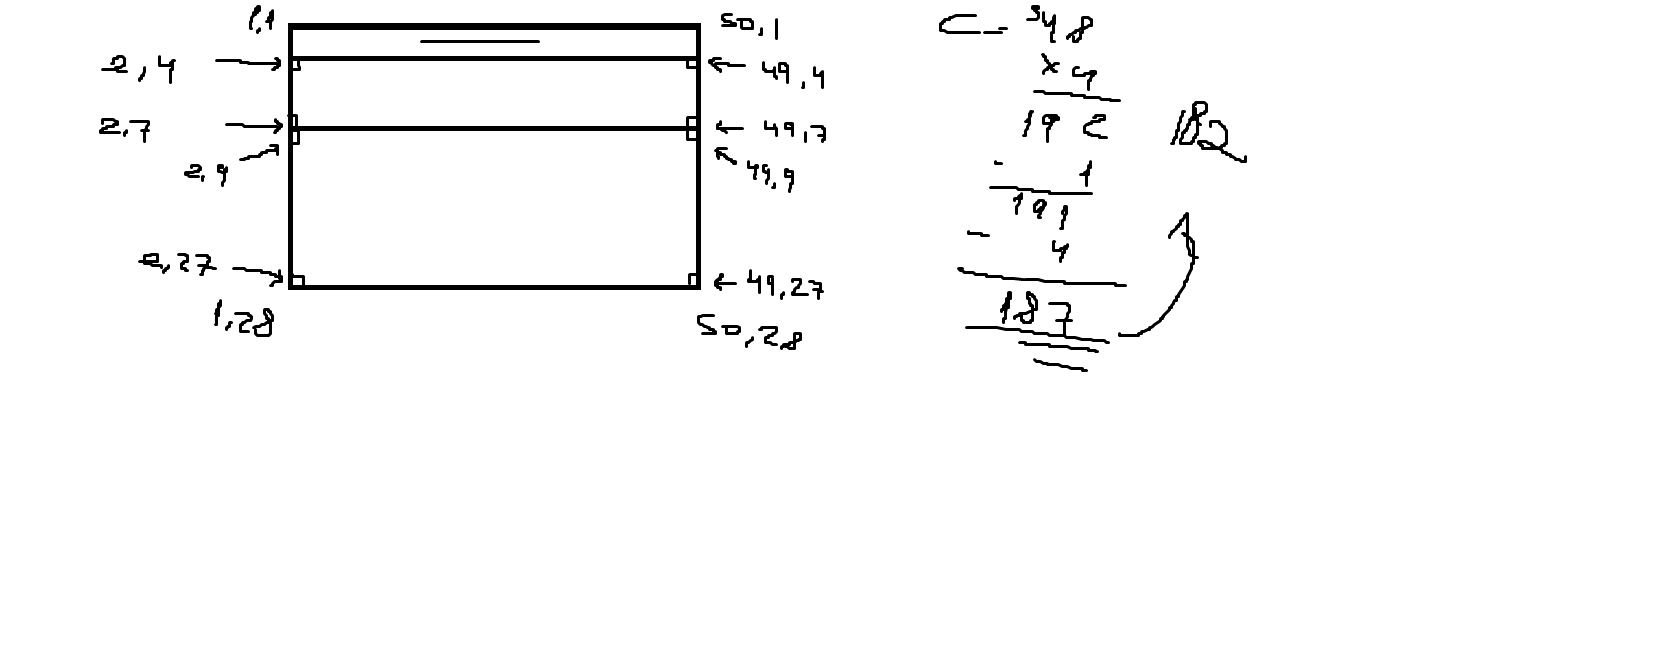 1,1
50,1
2,4
49,4
2,7
49,7
2,9
49,9
2,27
49,27
1,28
50,28
C - 348
x 4
192
- 1
191
- 4
187
182